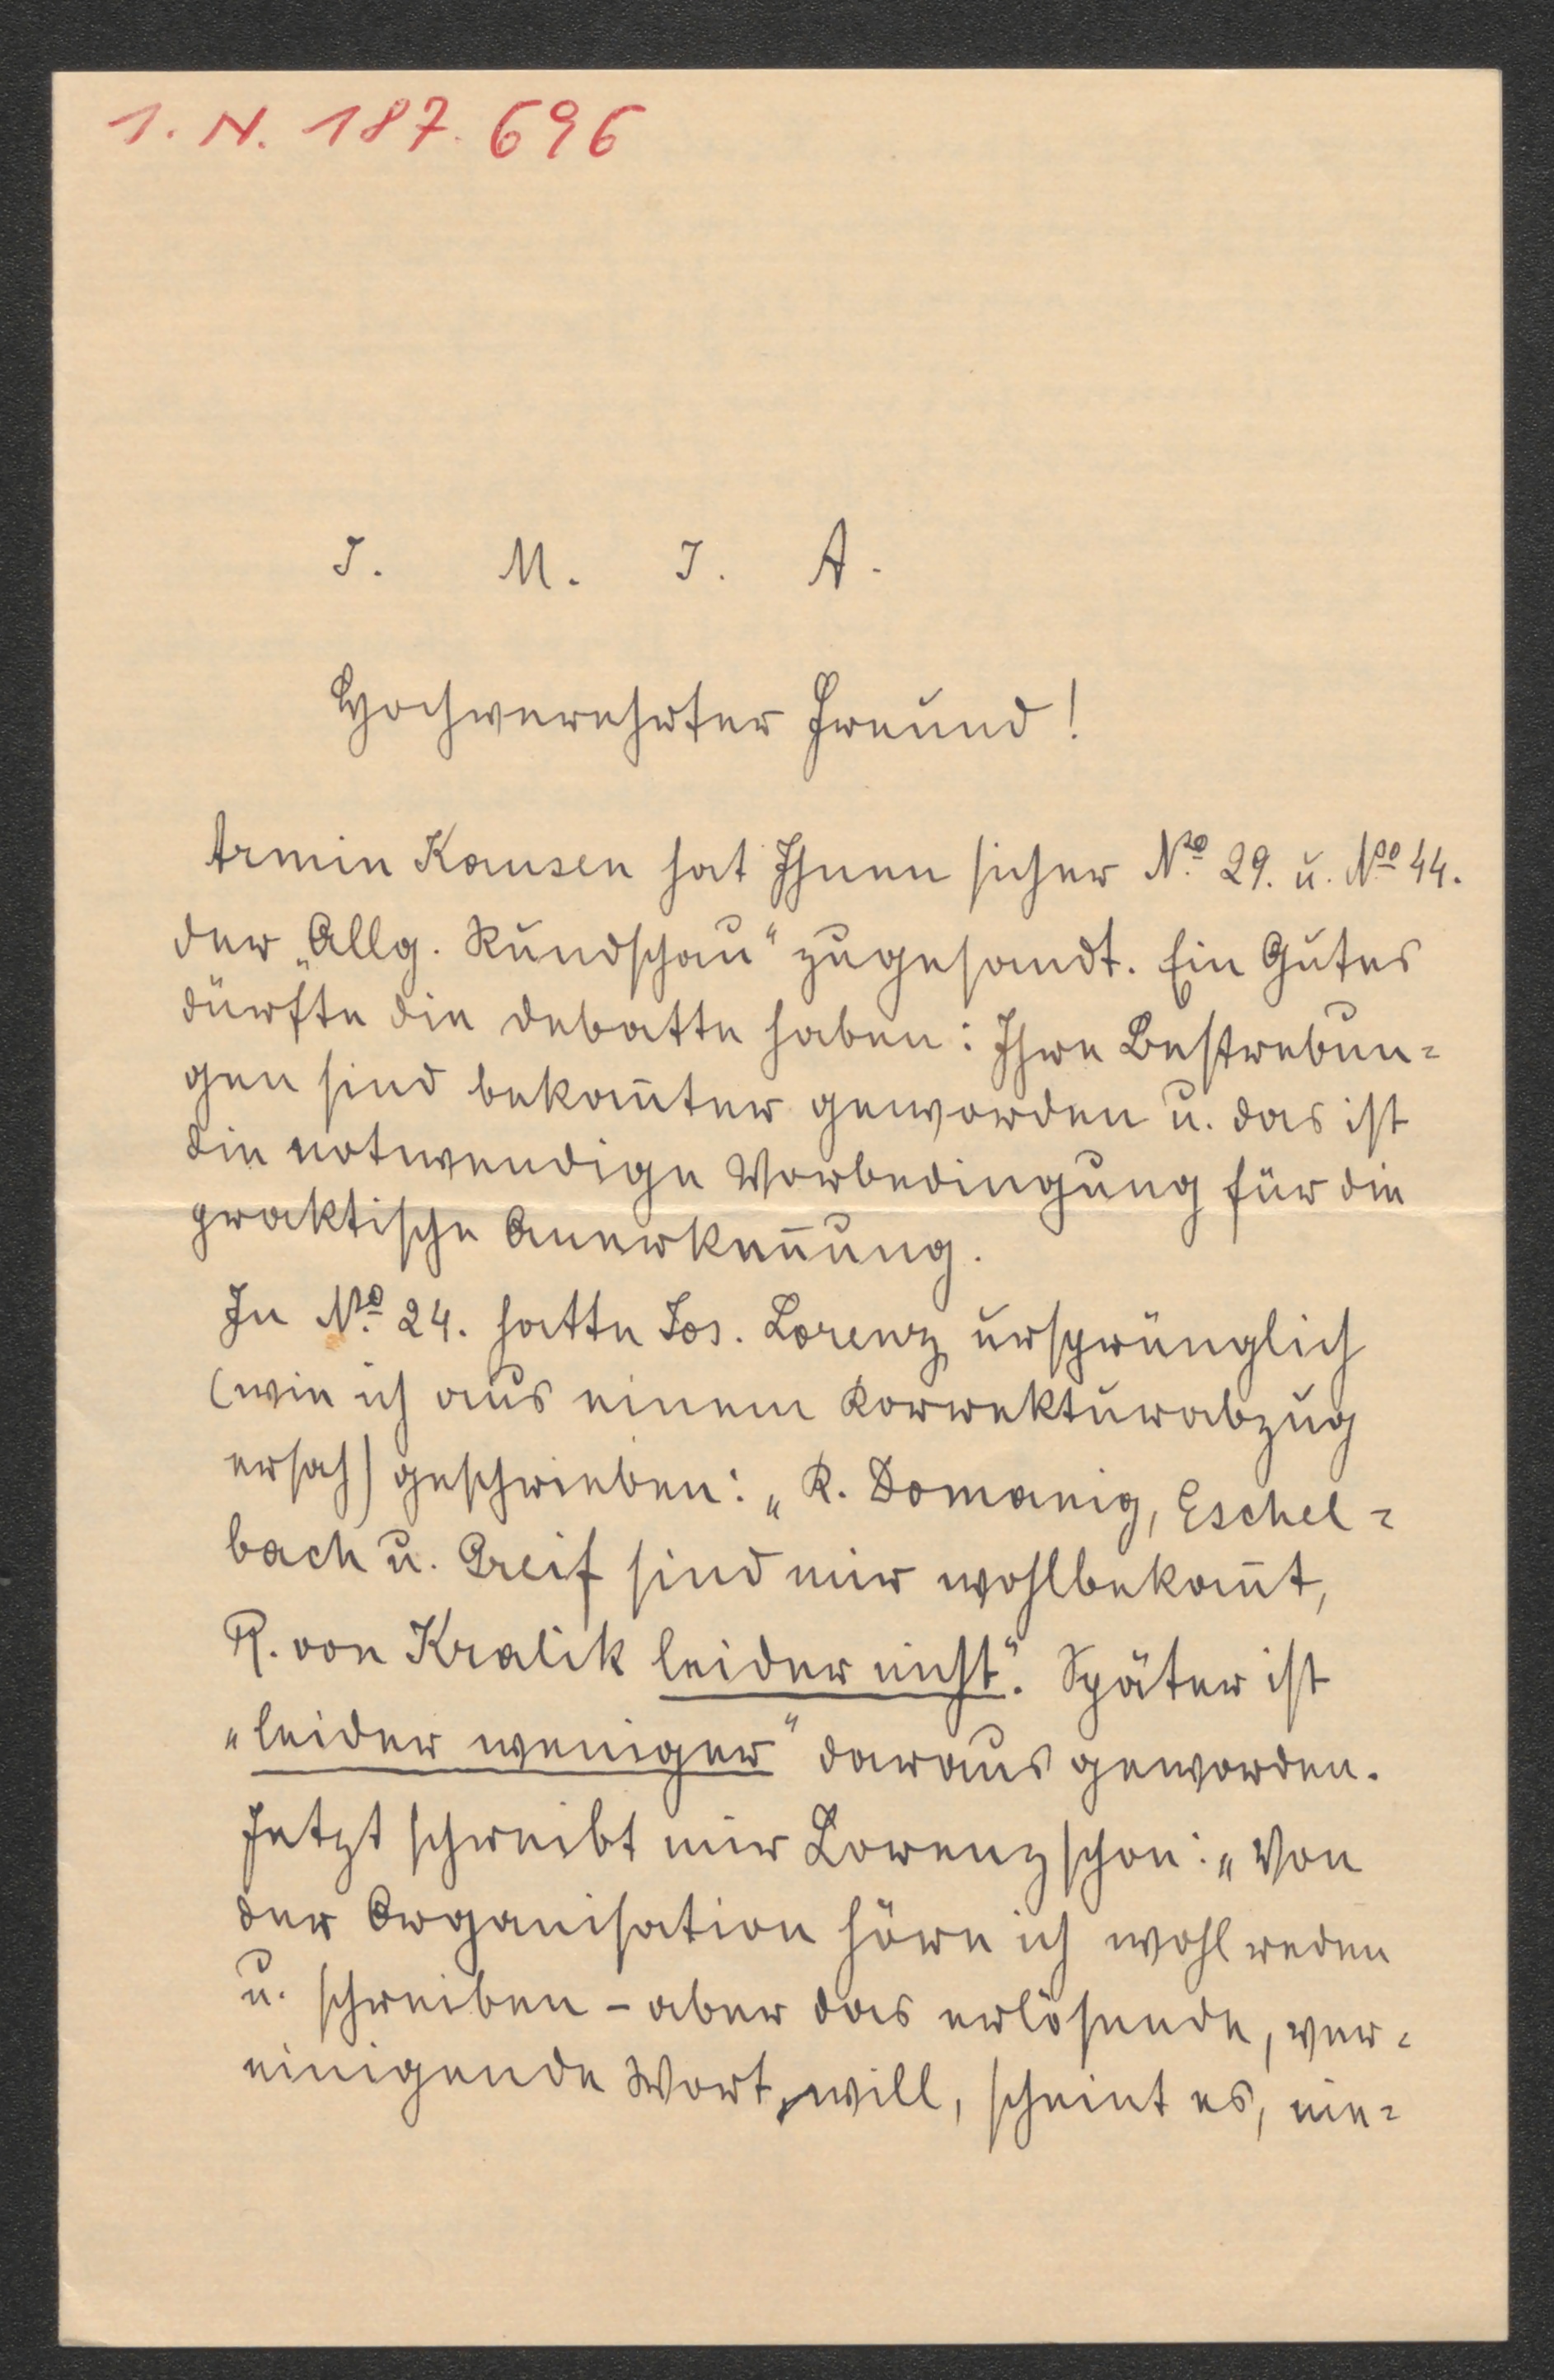 I. N. 187.696
J. M. J. A.
Hochverehrter Freund!
Armin Kausen hat Ihnen sicher No 29. u. No 44.
der „Allg. Rundschau“ zugesandt. Ein Gutes
dürfte die Debatte haben: Ihre Bestrebun=
gen sind bekan̄ter geworden u. das ist
die notwendige Vorbedingung für die
praktische Anerken̄ung.
In No 24. hatte Jos. Lorenz ursprünglich
(wie ich aus einem Korrekturabzug
ersah) geschrieben: „K. Domanig, Eschel=
bach u. Greif sind mir wohlbekan̄t,
R. von Kralik leider nicht“. Später ist
„leider weniger“ daraus geworden.
Jetzt schreibt mir Lorenz schon: „Von
der Organisation höre ich wohl reden
u. schreiben – aber das erlösende, ver=
einigende Wort, will, scheint es, nie=